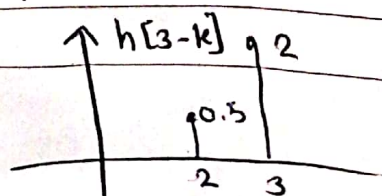 h[3-k] 2
0.5
2 3